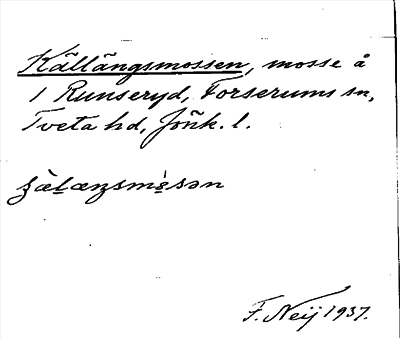 Källängsmossen, mosse å
1 Runseryd, Forserums sn,
Tveta hd, Jönk. l.
F. Neij 1937.